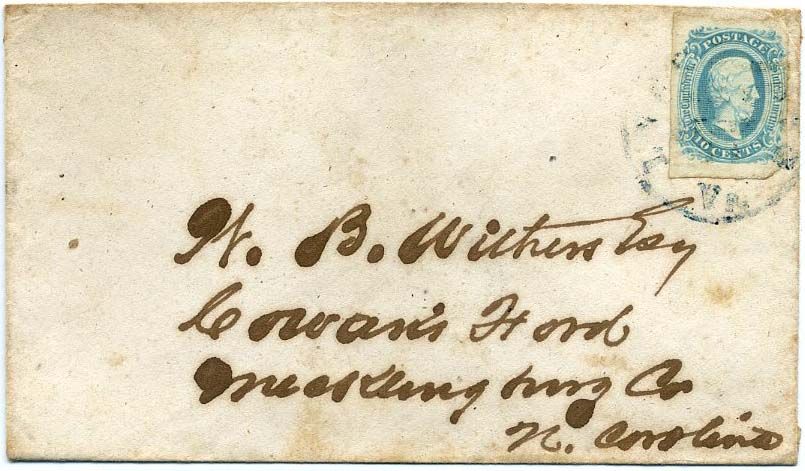 POSTAGE
The Confederate States of America
10 CENTS
VA
W. B. Withers Esq
Cowan's Ford
Mecklingburg Co
N. Carolina